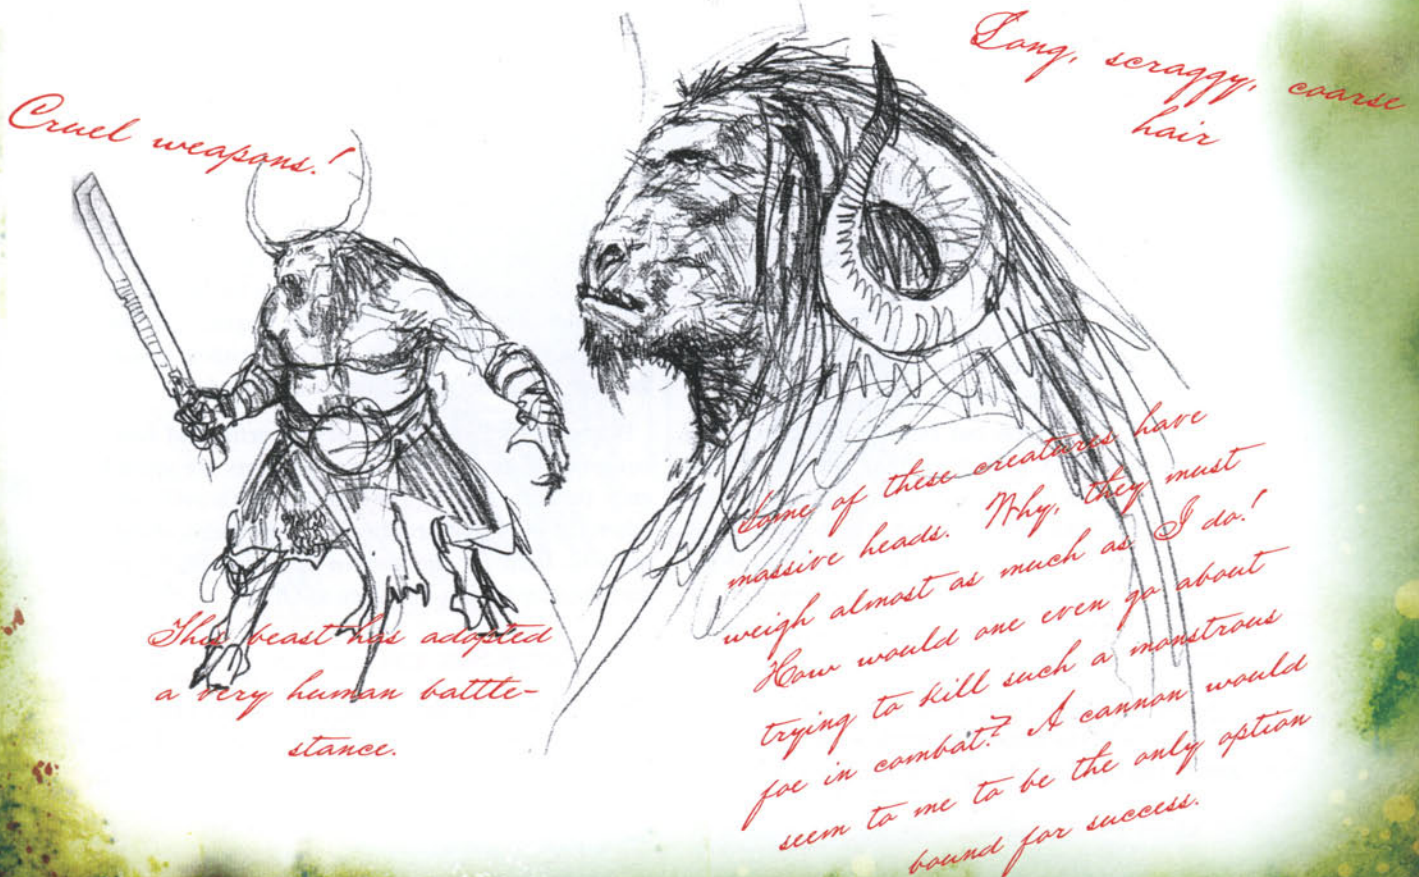 Cruel weapons!
Long, scraggy, coarse
hair
This beast has adopted
a very human battle-
stance.
Some of these creatures have
massive heads. Why, they must
weigh almost as much as I do!
How would one even go about
trying to kill such a monstrous
foe in combat? A cannon would
seem to me to be the only option
bound for success.